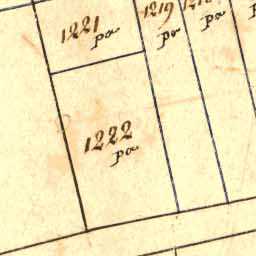 1221
pa
1219
pa
pa
1222
pa